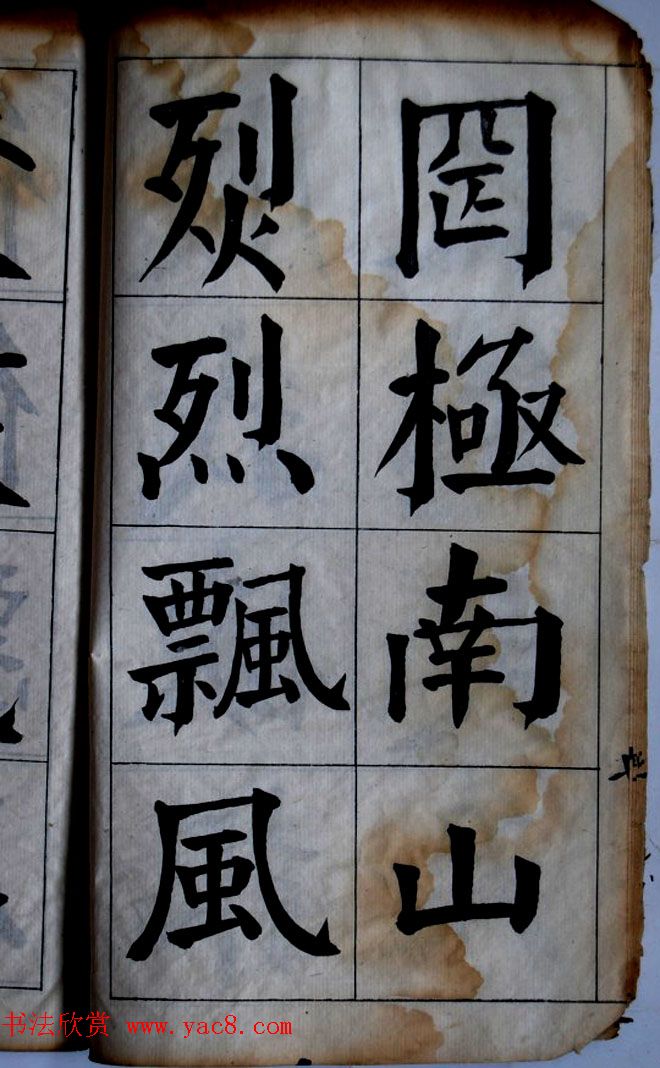 罔極南山
烈烈飄風
书法欣赏 www.yac8.com